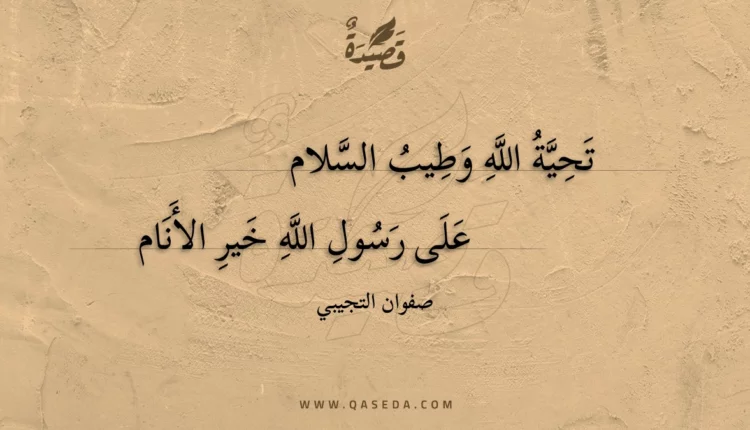 قَصِيدَةٌ
تَحِيَّةُ اللَّهِ وَطِيبُ السَّلام
عَلَى رَسُولِ اللَّهِ خَيرِ الأَنَام
صفوان التجيبي
WWW.QASEDA.COM